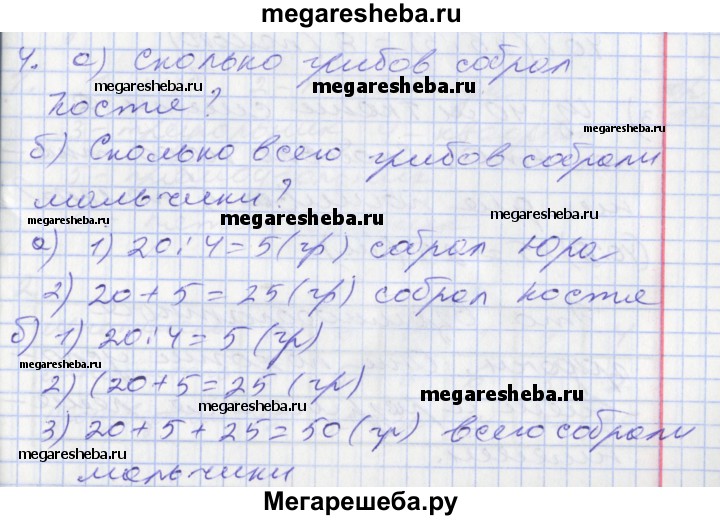 megaresheba.ru
4. а) Сколько грибов собрал
megaresheba.ru
megaresheba.ru
Костя?
megaresheba.ru
б) Сколько всего грибов собрали
мальчики?
megaresheba.ru
megaresheba.ru
megaresheba.ru
а) 1) 20:4=5(гр) собрал Юра
2) 20+5=25(гр) собрал Костя
б) 1) 20:4=5(гр)
megaresheba.ru
2) (20+5=25(гр)
megaresheba.ru
megaresheba.ru
3) 20+5+25=50(гр) всего собрали
мальчики
Мегарешеба.ру